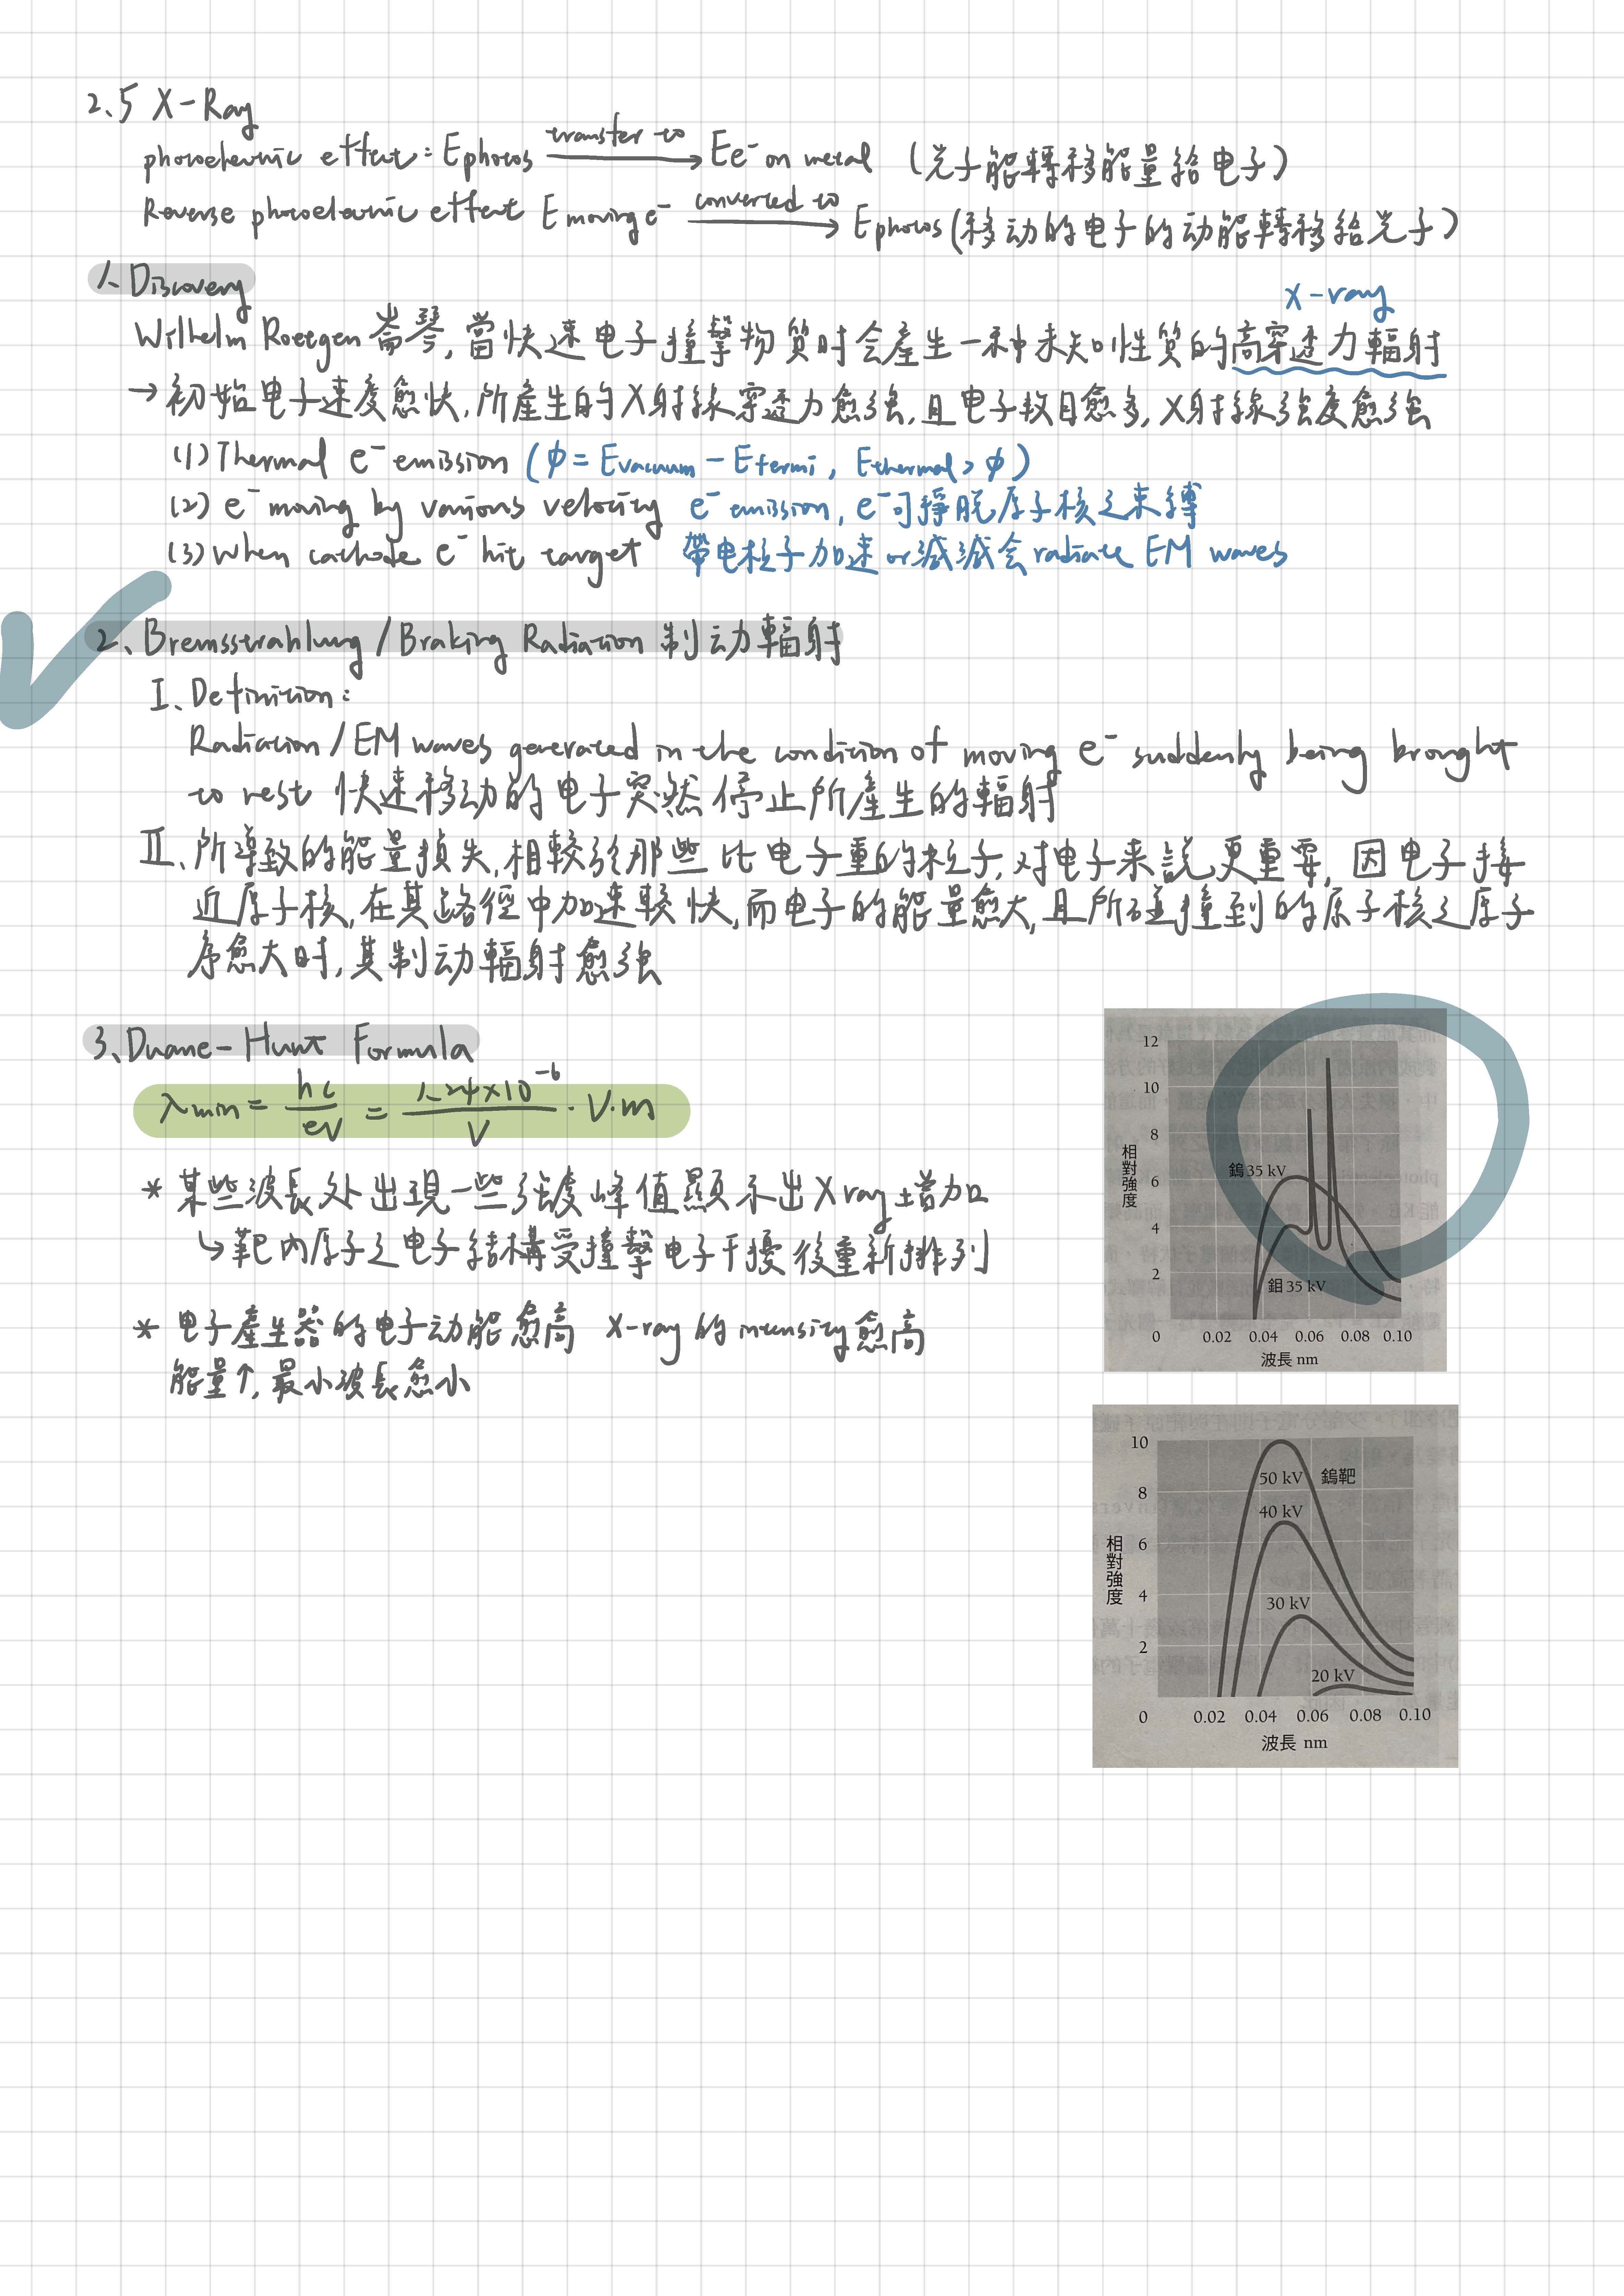 2.5 X-Ray
photoelectric effect: Ephotos transfer to Ee⁻ on metal (光子能轉移能量給电子)
Reverse photoelectric effect Emoving e⁻ converted to Ephotos (移动的电子的动能轉移給光子)
1. Discovery
x-ray
Wilhelm Roetgen 崙琴, 當快速电子撞擊物質时会產生一种未知性質的高穿透力輻射
→ 初始电子速度愈快, 所產生的X射線穿透力愈強, 且电子数目愈多, X射線強度愈強
(1) Thermal e⁻ emission (φ = Evacuum - Efermi, Ethermal > φ)
(2) e⁻ moving by various velocity e⁻ emission, e⁻可掙脫原子核之束縛
(3) When cathode e⁻ hit target 帶电粒子加速 or 減減会 radiate EM waves
2. Bremsstrahlung / Braking Radiation 制动輻射
I. Definition:
Radiation / EM waves generated in the condition of moving e⁻ suddenly being brought
to rest 快速移动的电子突然停止所產生的輻射
II. 所導致的能量損失, 相較於那些比电子重的粒子, 对电子来說更重要, 因电子接
近原子核, 在其路徑中加速較快, 而电子的能量愈大, 且所碰撞到的原子核之原子
序愈大时, 其制动輻射愈強
3. Duane-Hunt Formula
λmin = hc/eV = 1.24×10⁻⁶/V · V·m
* 某些波長处出現一些強度峰值顯示出X ray 增加
↳ 靶內原子之电子結構受撞擊电子干擾後重新排列
* 电子產生器的电子动能愈高 X-ray 的 intensity 愈高
能量↑, 最小波長愈小
12
10
8
6
4
2
0
相對強度
鎢 35 kV
鉬 35 kV
0.02 0.04 0.06 0.08 0.10
波長 nm
10
8
6
4
2
0
相對強度
50 kV 鎢靶
40 kV
30 kV
20 kV
0.02 0.04 0.06 0.08 0.10
波長 nm